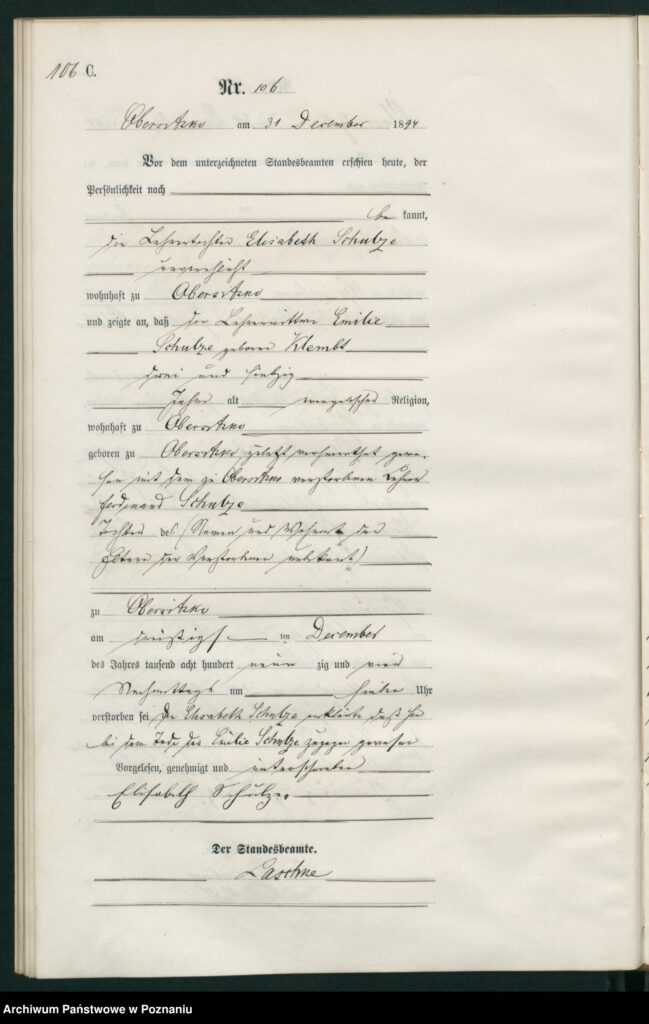 106 C.
Nr. 106
Obersitzko am 31 December 1894
Vor dem unterzeichneten Standesbeamten erschien heute, der
Persönlichkeit nach
be kannt,
die Lehrertochter Elisabeth Schulze
unverehlicht
wohnhaft zu Obersitzko
und zeigte an, daß die Lehrerwittwe Emilie
Schulze geborene Klembt
zwei und siebzig
Jahre alt evangelischer Religion,
wohnhaft zu Obersitzko
geboren zu Obersitzko zuletzt verheirathet gewe-
sen mit dem zu Obersitzko verstorbenen Lehrer
Ferdinand Schulze
Tochter des (Namen und Wohnort der
Eltern der Verstorbenen unbekannt)
zu Obersitzko
am dreißigs ten December
des Jahres tausend acht hundert neun zig und vier
Nachmittags um sieben Uhr
verstorben sei Die Elisabeth Schulze erklärte daß sie
bei dem Tode der Emilie Schulze zugegen gewesen
Vorgelesen, genehmigt und unterschrieben
Elisabeth Schulze.
Der Standesbeamte.
Laschke
Archiwum Państwowe w Poznaniu